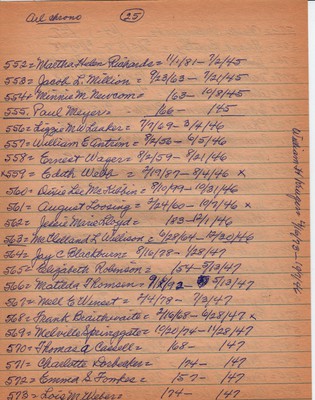 Art chrono (25)
552= Martha Helen Richards= 11/1/81- 7/2/45
553= Jacob L. Million = 9/23/63- 7/21/45
554= Minnie M. Newcom= /63- 10/8/45
555. Paul Meyer= /66- /45
556= Lizzie M. 7/7/69- 3/4/46
557= William E. Antrim= 8/2/56- 6/5/46
558= Ernest Wager= 8/2/59- 8/21/46
x559= Edith Webb = 9/19/87- 8/4/46 x
560= Dixie Lee McKibbin= 8/10/99- 10/31/46
561= August Loosing= 3/24/60- 10/7/46 x
562= Jessie Lloyd= /83-12/1/46
563= McClelland L. Wallison= 6/28/64- 12/30/46
564= Jay C. Blackburn= 8/16/78- 1/28/47
565= Elizabeth Robinson= /54- 2/13/47
566= Matilda Thomson= 9/18/92- 9/13/47
567= Nell E. 7/4/78- 7/3/47
568= Frank Braithwaite= 2/19/68- 6/28/47 x
569= Melville Springgate= 10/20/74- 11/28/47
570= Thomas A. Cassell= /68- /47
571= Charlotte /74- /47
572= Emma S. Fonkes= /57- /47
573= Lois M. Weber= /74- /47
William H. 3/16/73- 1/9/46